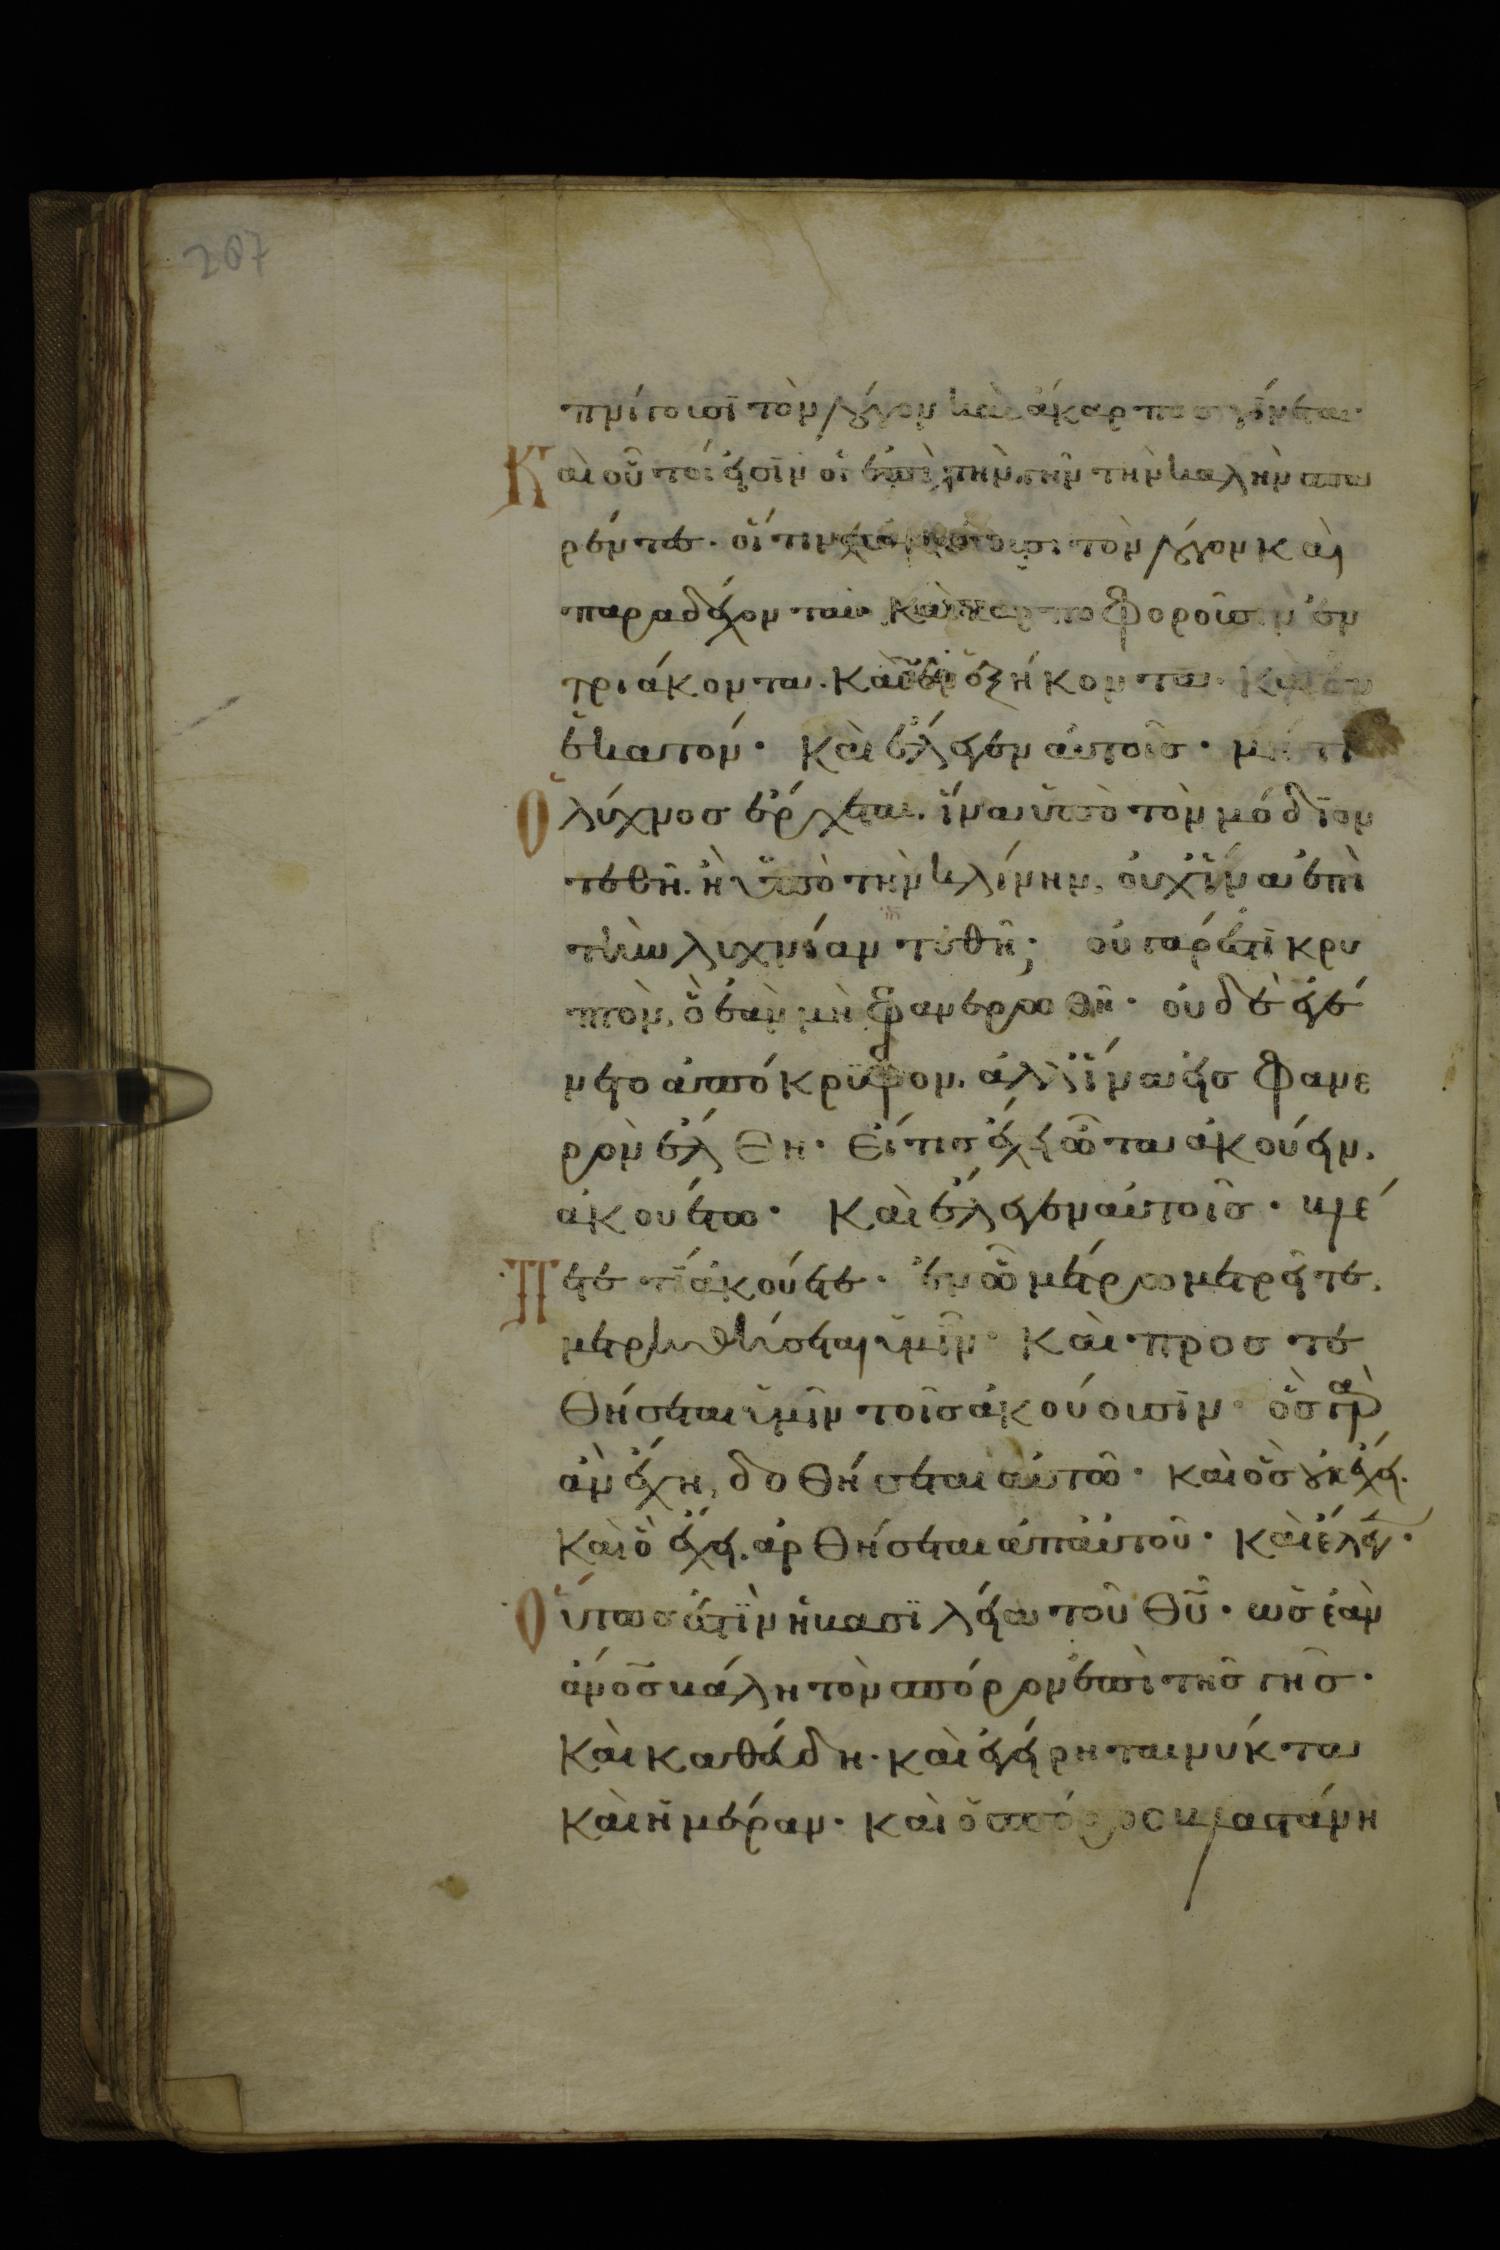 207
πνίγουσι τὸν λόγον καὶ ἄκαρπος γίνεται·
Καὶ οὗτοί εἰσὶν οἱ ἐπὶ τὴν γῆν τὴν καλὴν σπα
ρέντες· οἵτινες ἀκούουσι τὸν λόγον καὶ
παραδέχονται· καὶ καρποφοροῦσιν ἐν
τριάκοντα· καὶ ἐν ἑξήκοντα· καὶ ἐν
ἑκατόν· καὶ ἔλεγεν αὐτοῖς· μήτι
Ὁ λύχνος ἔρχεται, ἵνα ὑπὸ τὸν μόδϊον
τεθῆ. ἢ ὑπὸ τὴν κλίνην, οὐχ ἵνα ἐπὶ
τὴν λυχνίαν τεθῆ; οὐ γάρ ἐστὶ κρυ
πτὸν, ὃ ἐὰν μὴ φανερωθῆ· οὐδὲ ἐγέ
νετο ἀπόκρϋφον, ἀλλ' ἵνα εἰς φανε
ρὸν ἔλθη· Εἴ τις ἔχει ὦτα ἀκούειν,
ἀκουέτω· Καὶ ἔλεγεν αὐτοῖς· βλέ
Πετε τί ἀκούετε· ἐν ᾧ μέτρω μετρεῖτε,
μετρηθήσεται ὑμῖν· καὶ προστε
θήσεται ὑμῖν τοῖς ἀκούουσϊν· ὃς γὰρ
ἀν ἔχη, δοθήσεται αὐτῶ· καὶ ὃς οὐκ ἔχει.
καὶ ὃ ἔχει. ἀρθήσεται ἀπ αὐτοῦ· καὶ ἔλεγ·
Οὕτως ἐστὶν ἡ βασϊλεία τοῦ θῦ· ὡς ἐὰν
ἀνος βάλη τὸν σπόρον ἐπὶ τῆς γῆς·
καὶ καθεύδη· καὶ ἐγείρηται νύκτα
καὶ ἡμέραν· καὶ ὁ σπόρος βλαστάνη